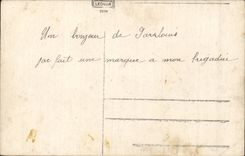 LEDUCA
Un bonjour de Sarrlouis
jai fait une marque a mon brigadier